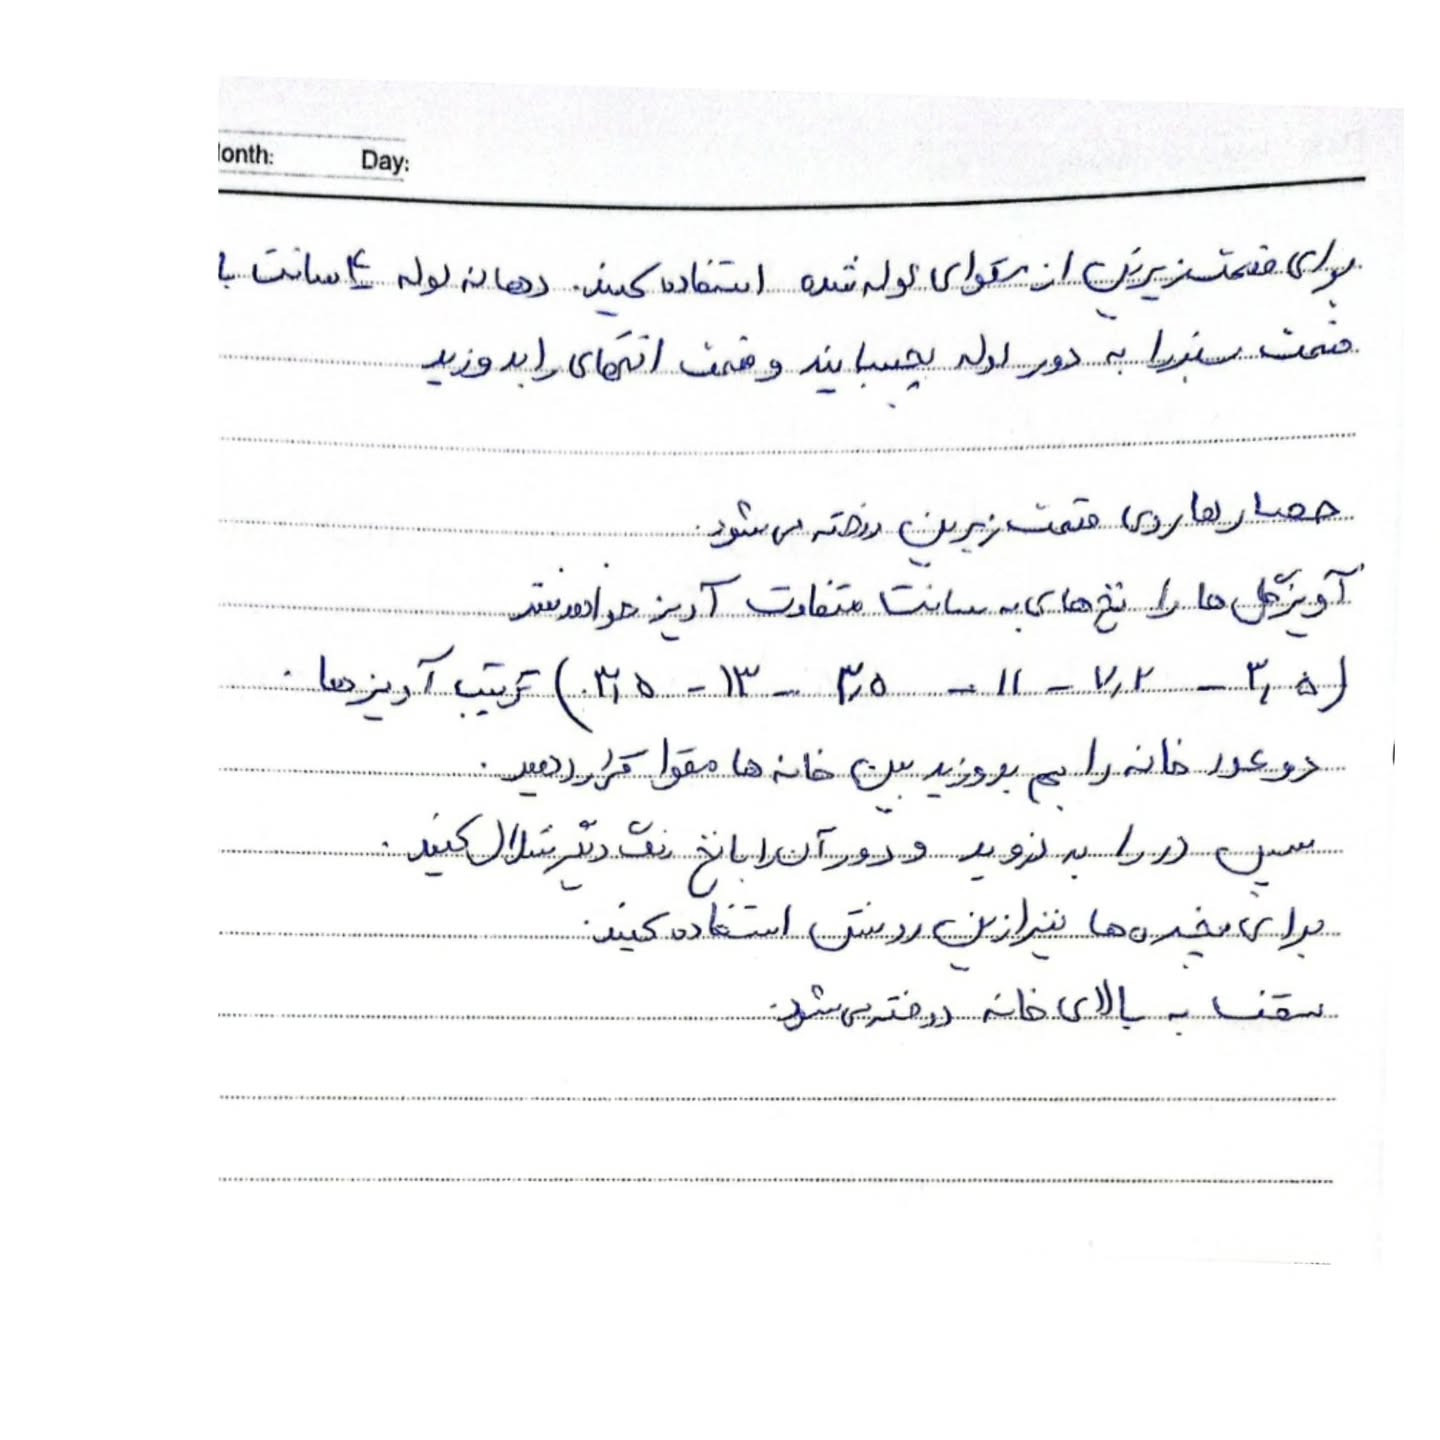 Month: Day:
برای قسمت زیرین از مقوای لوله شده استفاده کنید. دهانه لوله ۴ سانت با
قسمت سبز را به دور لوله بچسبایند و قسمت انتهای را بدوزید
حصارها روی قسمت زیرین دوخته می‌شود.
آویز گل ها را نخ های به سانت متفاوت آویز خواهند شد
(۳٫۵ - ۷٫۲ - ۱۱ - ۳٫۵ - ۱۳ - ۳٫۵) ترتیب آویزها.
دو عدد خانه را بهم بدوزید بین خانه ها مقوا قرار دهید.
سپس در را به دزوید و دور آن را با نخ رنگ دیگر شلال کنید.
برای پنجره ها نیز ازین روش استفاده کنید.
سقف به بالای خانه دوخته می‌شود.